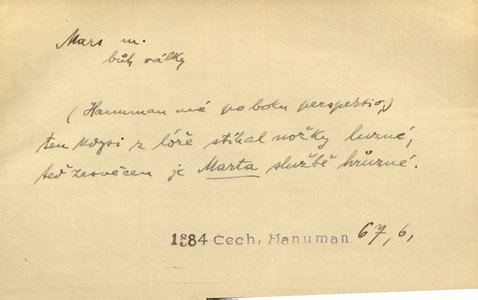 Mars m.
bůh války
(Hanuman má po boku
ten kdysi z lóže stíhal nožky lůzné,
teď zasvěcen je Marta službě hrůzné.
1884 Čech, Hanuman 67,6,